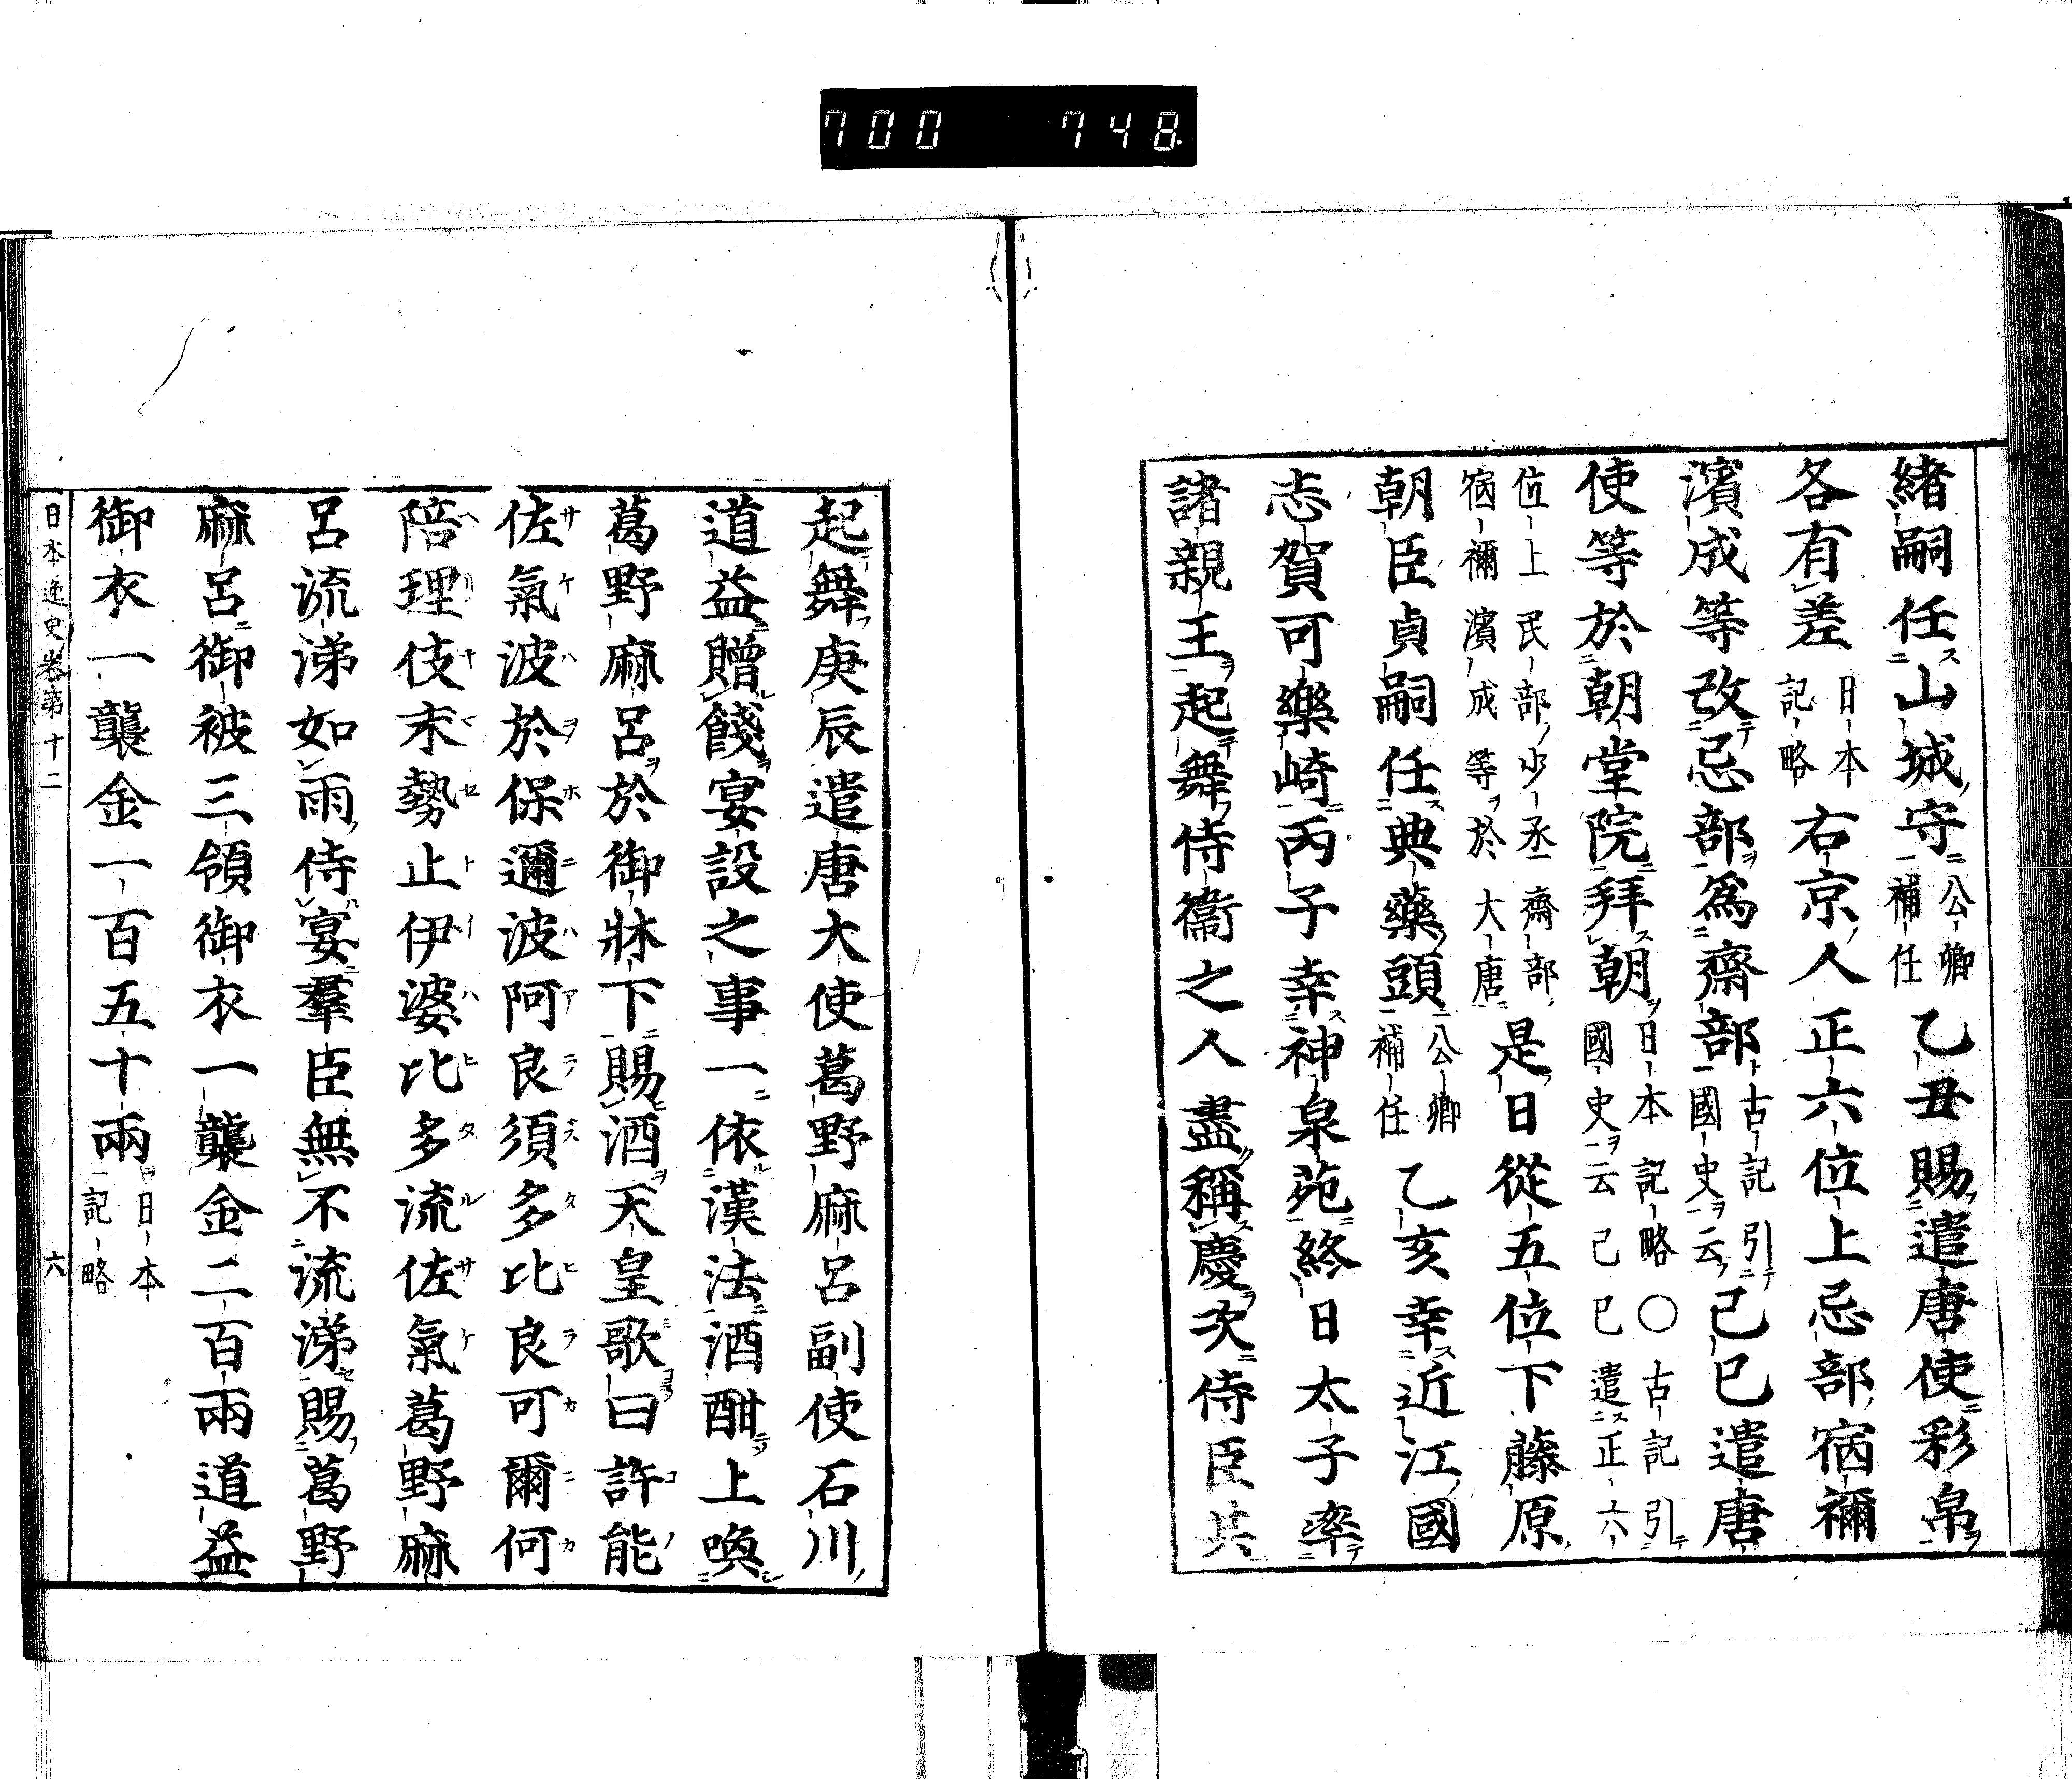 700 748
緒嗣任山城守公卿補任乙丑賜遣唐使彩帛
各有差日本記略右京人正六位上忌部宿禰
濱成等改忌部爲齋部古記引國史云己巳遣唐
使等於朝堂院拜朝日本記略○古記引國史云己巳遣正六
位上民部少丞齋部宿禰濱成等於大唐是日從五位下藤原
朝臣貞嗣任典藥頭公卿補任乙亥幸近江國
志賀可樂崎丙子幸神泉苑終日太子率
諸親王起舞侍衞之人盡稱慶次侍臣共
起舞庚辰遣唐大使葛野麻呂副使石川
道益贈餞宴設之事一依漢法酒酣上喚
葛野麻呂於御牀下賜酒天皇歌曰許能
佐氣波於保邇波阿良須多比良可爾何
陪理伎末勢止伊婆比多流佐氣葛野麻
呂流涕如雨侍宴羣臣無不流涕賜葛野
麻呂御被三領御衣一襲金二百兩道益
御衣一襲金一百五十兩日本記略
日本逸史卷第十二 六